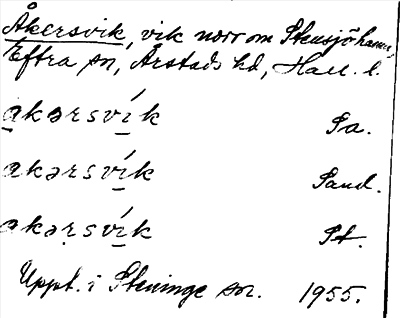 Åkersvik, vik norr om Stensjöhamn,
Eftra sn, Årstads hd, Hall. l.
a̲kərsví̲k Sa.
akərsví̲k Sand.
akəṛsví̲k St.
Uppt. i Steninge sn. 1955.